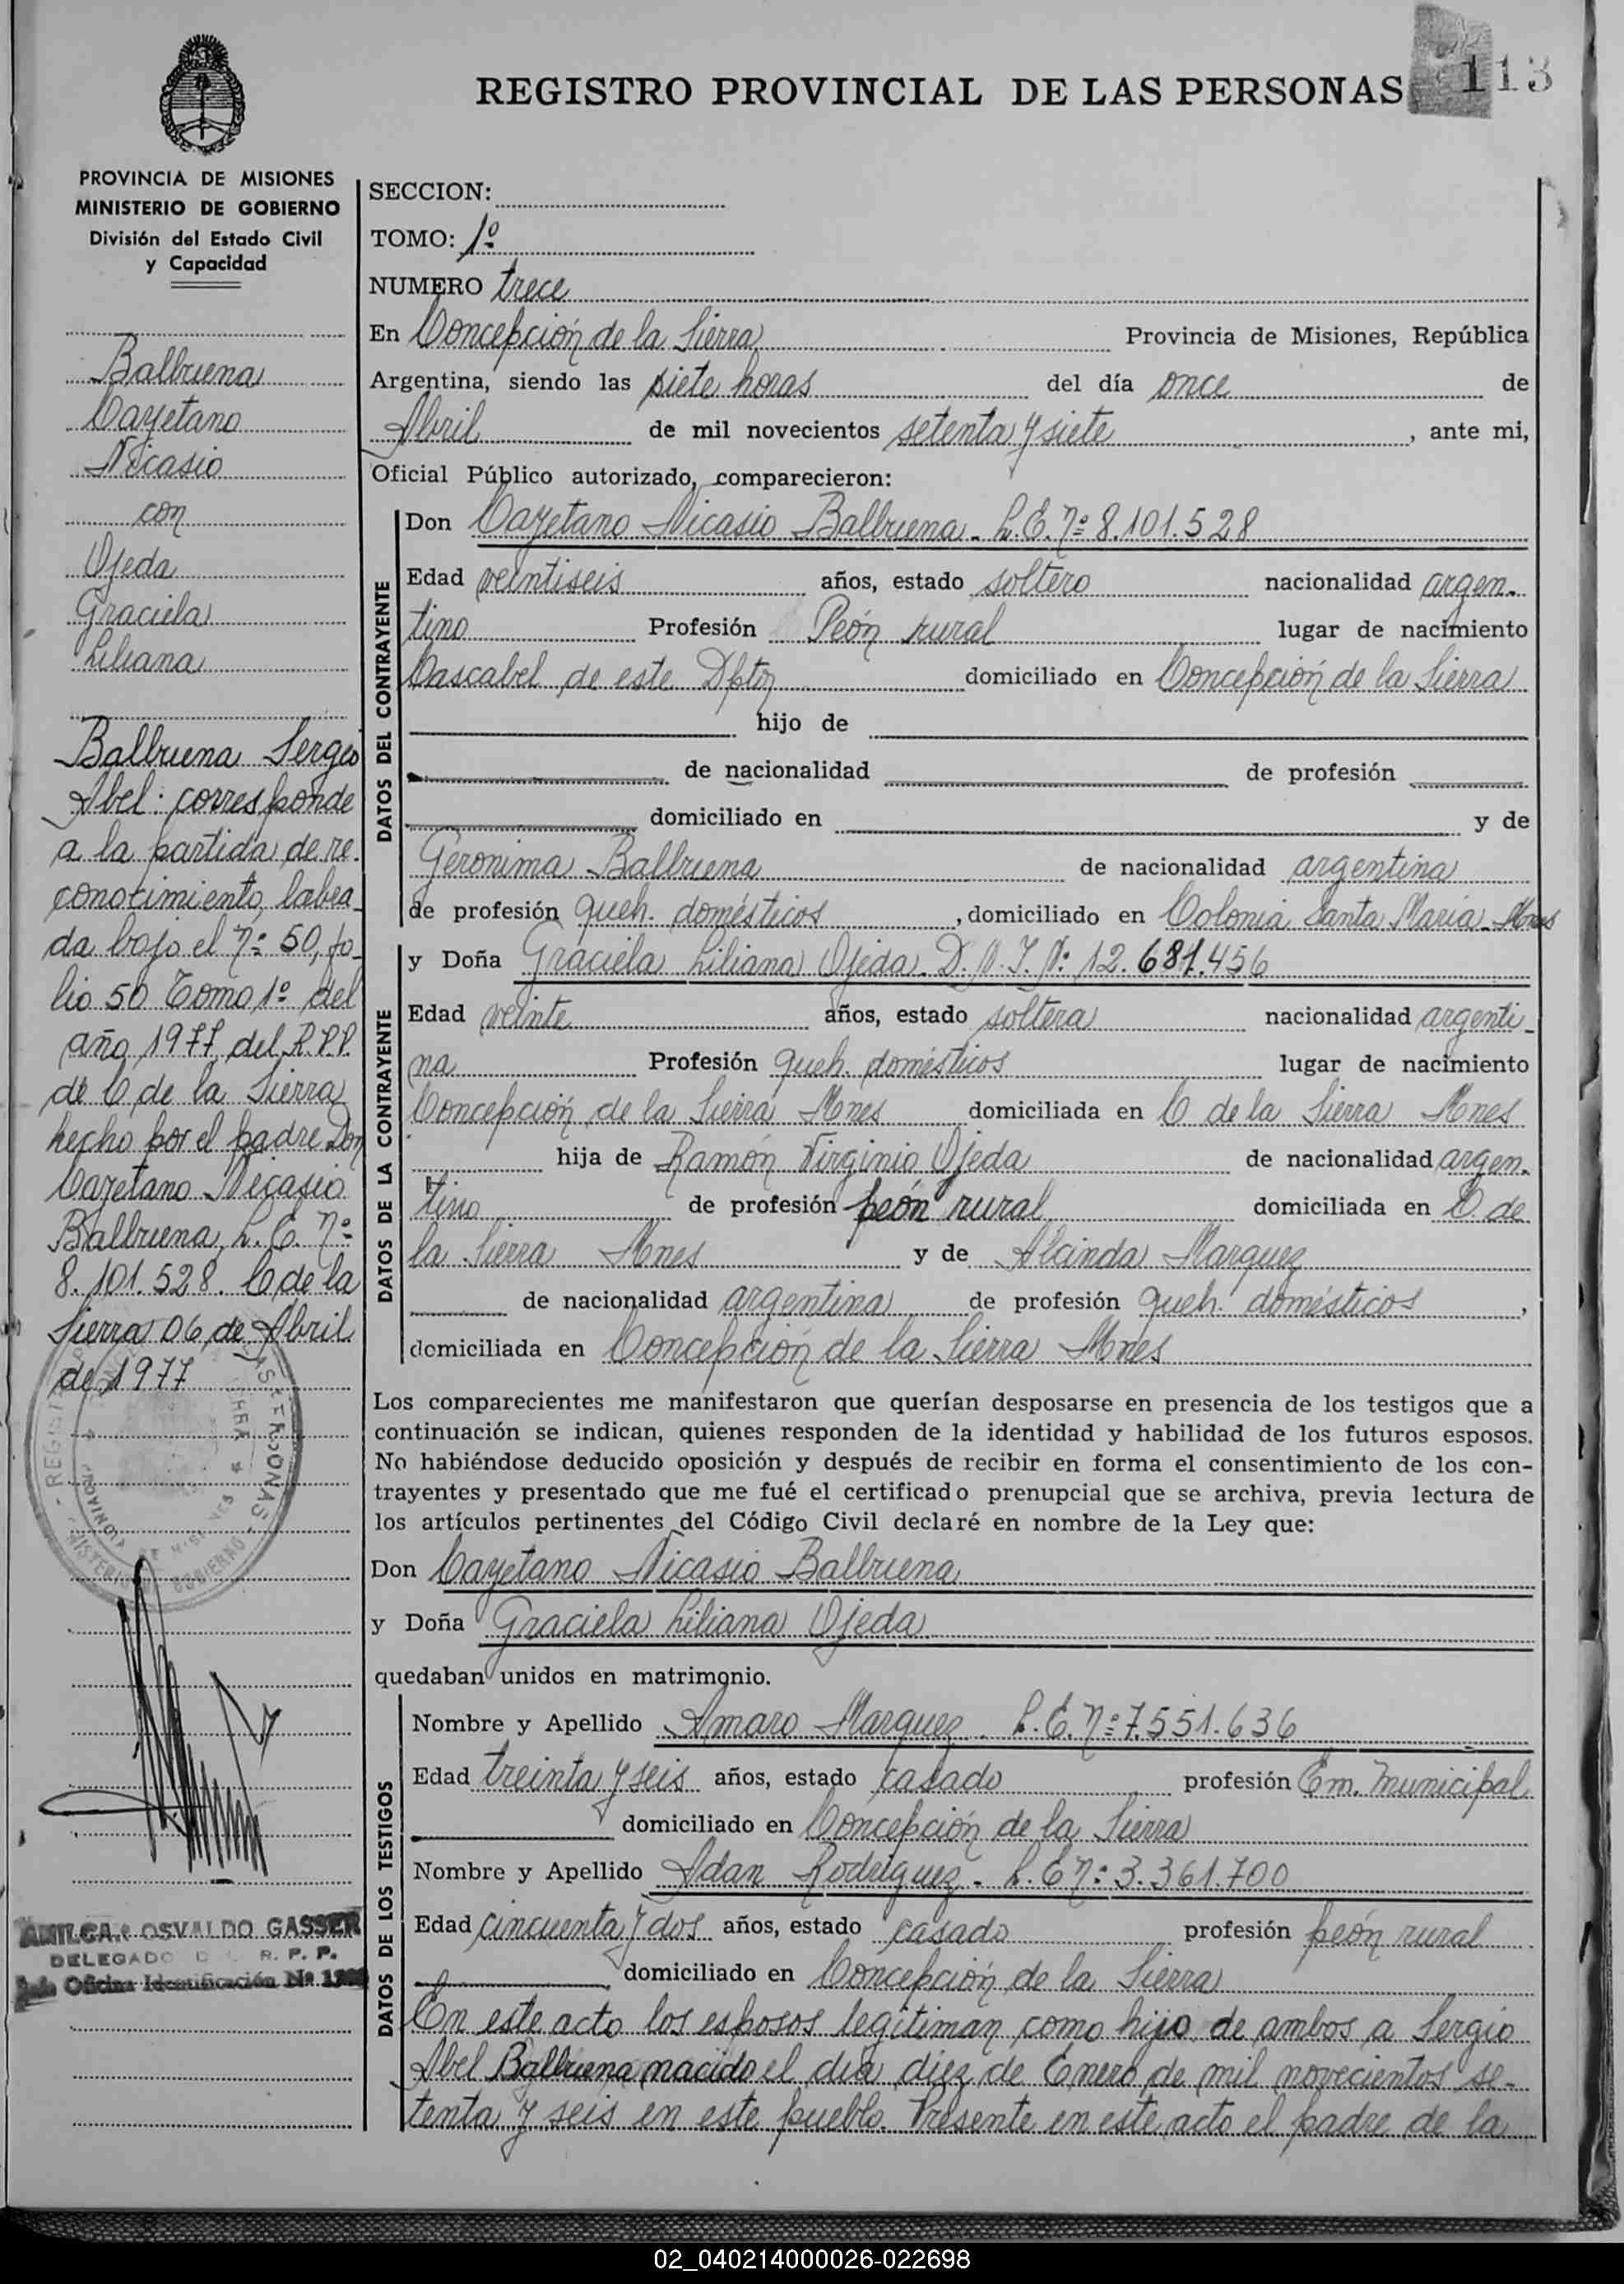 REGISTRO PROVINCIAL DE LAS PERSONAS
113
PROVINCIA DE MISIONES
MINISTERIO DE GOBIERNO
División del Estado Civil
y Capacidad
Balbuena
Cayetano
Nicasio
con
Ojeda
Graciela
Liliana
Balbuena Sergio
Abel: corresponde
a la partida de re-
conocimiento, labra-
da bajo el Nº 50, fo-
lio 50 Tomo 1º del
año 1977 del R.P.P.
de C de la Sierra
hecho por el padre Don
Cayetano Nicasio
Balbuena, L.E. Nº
8.101.528. C de la
Sierra 06 de Abril
de 1977
OSVALDO GASSER
DELEGADO R. P. P.
Oficina Identificación Nº
SECCION:
TOMO: 1º
NUMERO trece
En Concepción de la Sierra Provincia de Misiones, República
Argentina, siendo las siete horas del día once de
Abril de mil novecientos setenta y siete, ante mi,
Oficial Público autorizado, comparecieron:
DATOS DEL CONTRAYENTE
Don Cayetano Nicasio Balbuena. L.E. Nº 8.101.528
Edad veintiseis años, estado soltero nacionalidad argen-
tino Profesión Peón rural lugar de nacimiento
Cascabel de este Dpto domiciliado en Concepción de la Sierra
hijo de
de nacionalidad de profesión
domiciliado en y de
Geronima Balbuena de nacionalidad argentina
de profesión queh. domésticos, domiciliado en Colonia Santa María. Mnes
DATOS DE LA CONTRAYENTE
y Doña Graciela Liliana Ojeda. D.N.I. Nº 12.681.456
Edad veinte años, estado soltera nacionalidad argenti-
na Profesión queh. domésticos lugar de nacimiento
Concepción de la Sierra Mnes domiciliada en C de la Sierra Mnes
hija de Ramón Virginio Ojeda de nacionalidad argen-
tino de profesión peón rural domiciliada en C de
la Sierra Mnes y de Alcinda Marquez
de nacionalidad argentina de profesión queh. domésticos,
domiciliada en Concepción de la Sierra Mnes
Los comparecientes me manifestaron que querían desposarse en presencia de los testigos que a
continuación se indican, quienes responden de la identidad y habilidad de los futuros esposos.
No habiéndose deducido oposición y después de recibir en forma el consentimiento de los con-
trayentes y presentado que me fué el certificado prenupcial que se archiva, previa lectura de
los artículos pertinentes del Código Civil declaré en nombre de la Ley que:
Don Cayetano Nicasio Balbuena
y Doña Graciela Liliana Ojeda
quedaban unidos en matrimonio.
DATOS DE LOS TESTIGOS
Nombre y Apellido Amaro Marquez. L.E. Nº 7.551.636
Edad treinta y seis años, estado casado profesión Em. Municipal
domiciliado en Concepción de la Sierra
Nombre y Apellido Adan Rodriguez. L.E Nº: 3.361.700
Edad cincuenta y dos años, estado casado profesión peón rural
domiciliado en Concepción de la Sierra
En este acto los esposos legitiman como hijo de ambos a Sergio
Abel Balbuena nacido el día diez de Enero de mil novecientos se-
tenta y seis en este pueblo. Presente en este acto el padre de la
02_040214000026-022698